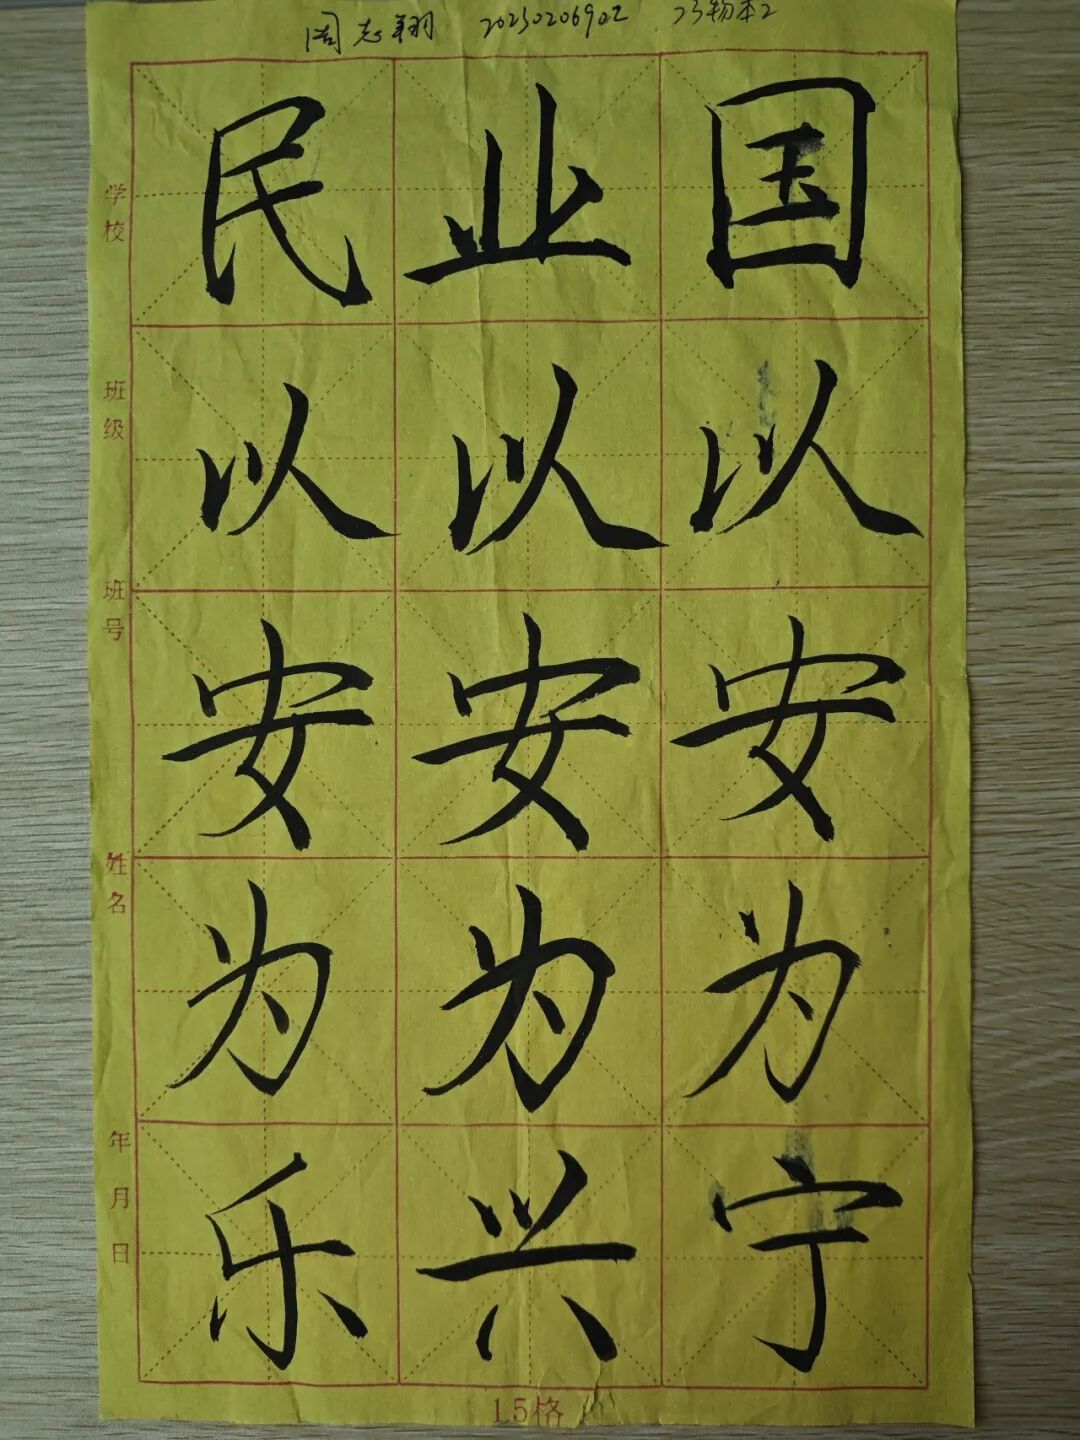 周志翔 20230206902 23物本2
国以安为宁
业以安为兴
民以安为乐
学校
班级
班号
姓名
年月日
15格